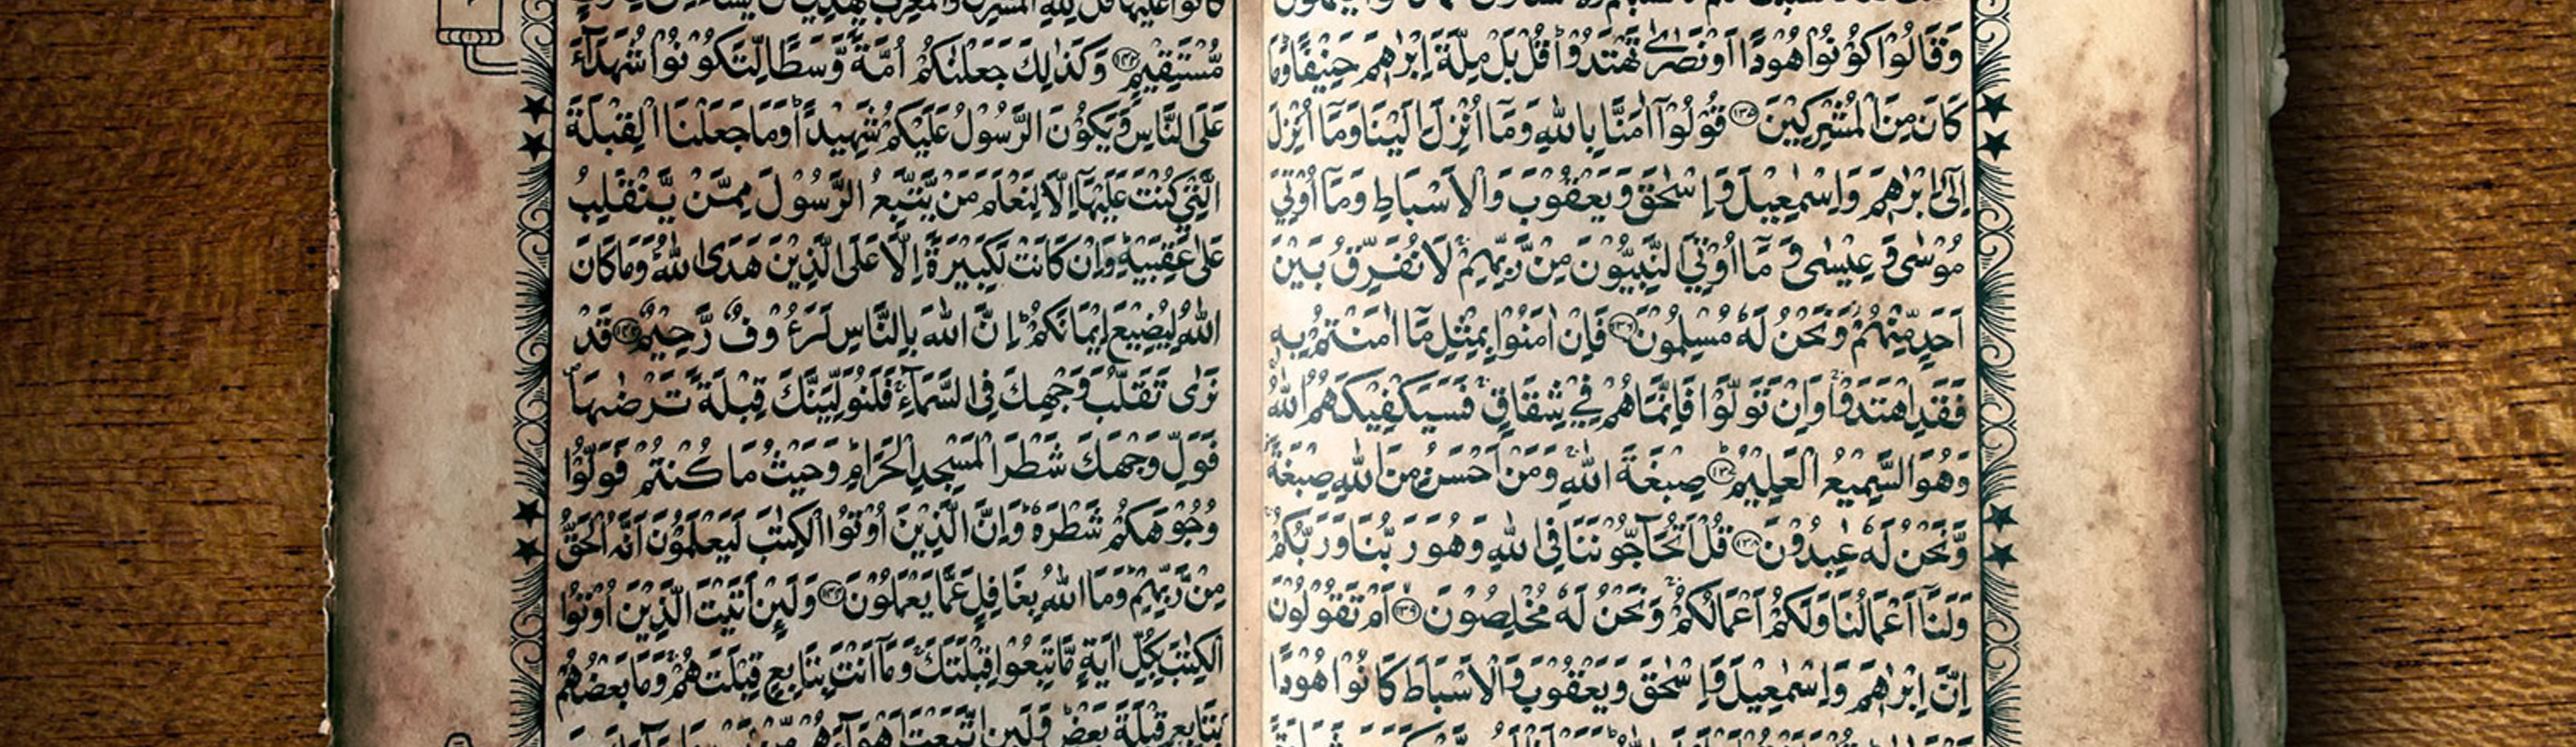 وَقَالُوْا كُوْنُوْا هُوْدًا اَوْ نَصٰرٰى تَهْتَدُوْاؕ قُلْ بَلْ مِلَّةَ اِبْرٰهٖمَ حَنِيْفًاؕ وَمَا
كَانَ مِنَ الْمُشْرِكِيْنَ ۝١٣٥ قُوْلُوْۤا اٰمَنَّا بِاللّٰهِ وَمَاۤ اُنْزِلَ اِلَيْنَا وَمَاۤ اُنْزِلَ
اِلٰۤى اِبْرٰهٖمَ وَاِسْمٰعِيْلَ وَاِسْحٰقَ وَيَعْقُوْبَ وَالْاَسْبَاطِ وَمَاۤ اُوْتِيَ
مُوْسٰى وَعِيْسٰى وَمَاۤ اُوْتِيَ النَّبِيُّوْنَ مِنْ رَّبِّهِمْۚ لَا نُفَرِّقُ بَيْنَ
اَحَدٍ مِّنْهُمْؗ وَنَحْنُ لَهٗ مُسْلِمُوْنَ ۝١٣٦ فَاِنْ اٰمَنُوْا بِمِثْلِ مَاۤ اٰمَنْتُمْ بِهٖ
فَقَدِ اهْتَدَوْاۚ وَاِنْ تَوَلَّوْا فَاِنَّمَا هُمْ فِيْ شِقَاقٍۚ فَسَيَكْفِيْكَهُمُ اللّٰهُ
وَهُوَ السَّمِيْعُ الْعَلِيْمُ ۝١٣٧ صِبْغَةَ اللّٰهِۚ وَمَنْ اَحْسَنُ مِنَ اللّٰهِ صِبْغَةً
وَّنَحْنُ لَهٗ عٰبِدُوْنَ ۝١٣٨ قُلْ اَتُحَآجُّوْنَنَا فِي اللّٰهِ وَهُوَ رَبُّنَا وَرَبُّكُمْ
وَلَنَاۤ اَعْمَالُنَا وَلَكُمْ اَعْمَالُكُمْۚ وَنَحْنُ لَهٗ مُخْلِصُوْنَ ۝١٣٩ اَمْ تَقُوْلُوْنَ
اِنَّ اِبْرٰهٖمَ وَاِسْمٰعِيْلَ وَاِسْحٰقَ وَيَعْقُوْبَ وَالْاَسْبَاطَ كَانُوْا هُوْدًا
مُّسْتَقِيْمٍ ۝١٤٢ وَكَذٰلِكَ جَعَلْنٰكُمْ اُمَّةً وَّسَطًا لِّتَكُوْنُوْا شُهَدَآءَ
عَلَى النَّاسِ وَيَكُوْنَ الرَّسُوْلُ عَلَيْكُمْ شَهِيْدًاؕ وَمَا جَعَلْنَا الْقِبْلَةَ
الَّتِيْ كُنْتَ عَلَيْهَاۤ اِلَّا لِنَعْلَمَ مَنْ يَّتَّبِعُ الرَّسُوْلَ مِمَّنْ يَّنْقَلِبُ
عَلٰى عَقِبَيْهِؕ وَاِنْ كَانَتْ لَكَبِيْرَةً اِلَّا عَلَى الَّذِيْنَ هَدَى اللّٰهُؕ وَمَا كَانَ
اللّٰهُ لِيُضِيْعَ اِيْمَانَكُمْؕ اِنَّ اللّٰهَ بِالنَّاسِ لَرَءُوْفٌ رَّحِيْمٌ ۝١٤٣ قَدْ
نَرٰى تَقَلُّبَ وَجْهِكَ فِي السَّمَآءِۚ فَلَنُوَلِّيَنَّكَ قِبْلَةً تَرْضٰىهَا
فَوَلِّ وَجْهَكَ شَطْرَ الْمَسْجِدِ الْحَرَامِؕ وَحَيْثُ مَا كُنْتُمْ فَوَلُّوْا
وُجُوْهَكُمْ شَطْرَهٗؕ وَاِنَّ الَّذِيْنَ اُوْتُوا الْكِتٰبَ لَيَعْلَمُوْنَ اَنَّهُ الْحَقُّ
مِنْ رَّبِّهِمْؕ وَمَا اللّٰهُ بِغَافِلٍ عَمَّا يَعْمَلُوْنَ ۝١٤٤ وَلَئِنْ اَتَيْتَ الَّذِيْنَ اُوْتُوا
الْكِتٰبَ بِكُلِّ اٰيَةٍ مَّا تَبِعُوْا قِبْلَتَكَۚ وَمَاۤ اَنْتَ بِتَابِعٍ قِبْلَتَهُمْۚ وَمَا بَعْضُهُمْ
بِتَابِعٍ قِبْلَةَ بَعْضٍؕ وَلَئِنِ اتَّبَعْتَ اَهْوَآءَهُمْ